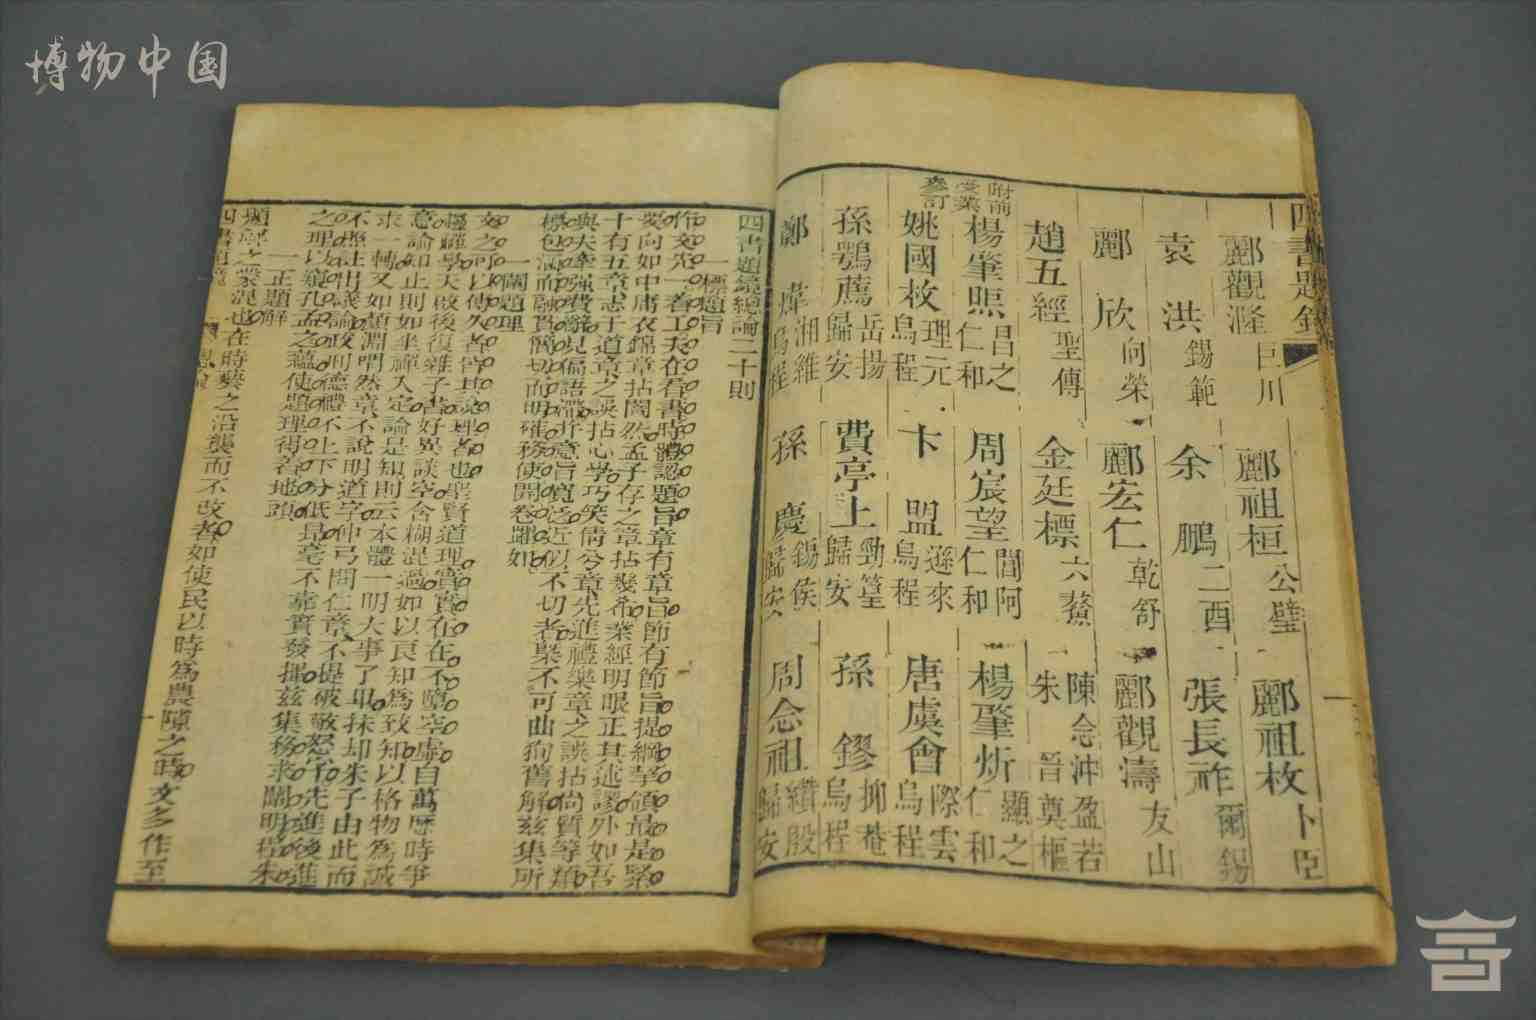 博物中国
四書題鏡
酈觀漋 巨川 酈祖桓 公璧 酈祖枚 卜臣
袁洪 錫範 余鵬 二酉 張長祚 爾錫
酈欣 向榮 酈宏仁 乾舒 酈觀濤 友山
趙五經 聖傳 金廷標 六鰲 陳念沖 盈若 朱晉 奠樞
附前受業參訂
楊肇煕 昌之 仁和 周宸望 誾阿 仁和 楊肇炘 顯之 仁和
姚國枚 理元 烏程 卞盟 遜來 烏程 唐虞會 際雲 烏程
孫鶚薦 岳揚 歸安 費亭上 勁篁 歸安 孫鏐 抑菴 烏程
鄭 湘維 烏程 孫慶 錫侯 歸安 周念祖 纘殷 歸安
四書題鏡總論二十則
一標題旨
作文先一着工夫在看書時體認題旨章有章旨節有節旨提綱挈領最是緊
要向如中庸衣錦章拈闇然孟子存之章拈幾希業經明眼正其述謬外如吾
十有五章志于道章之誤拈心學巧笑倩兮章先進禮樂章之誤拈尚質等類
與夫牽強費辭見偏語滯并意旨寬泛近似不切者槩不可曲狥舊解茲集所
標包涵而融貫簡切而明確務使開卷躍如
一闡題理
文之可以傳久者皆其說理者也聖賢道理實實在在不墮空虛自萬歷時爭
穪禪學天啟後復雜子書好異談空含糊混過如以良知爲致知以格物爲誠
意論知止則如坐禪入定論是知則云本體一明大事了畢抹却朱子由此而
求一轉又如顏淵喟然章不說明道字仲弓問仁章不提破敬恕字先進後進
不極註出議論政刑德禮不上下分低昻毫不靠實發揮茲集務求闡明程朱
之理以窺孔孟之蘊使題理得着地頭
一正題解
題解之蒙混也在時藝之沿襲而不改者如使民以時爲農隙之時文多作至